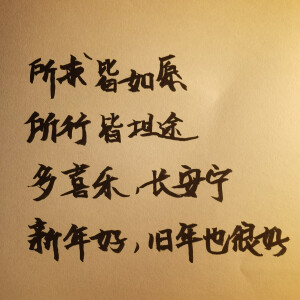 所求皆如愿
所行皆坦途
多喜乐，长安宁
新年好，旧年也很好